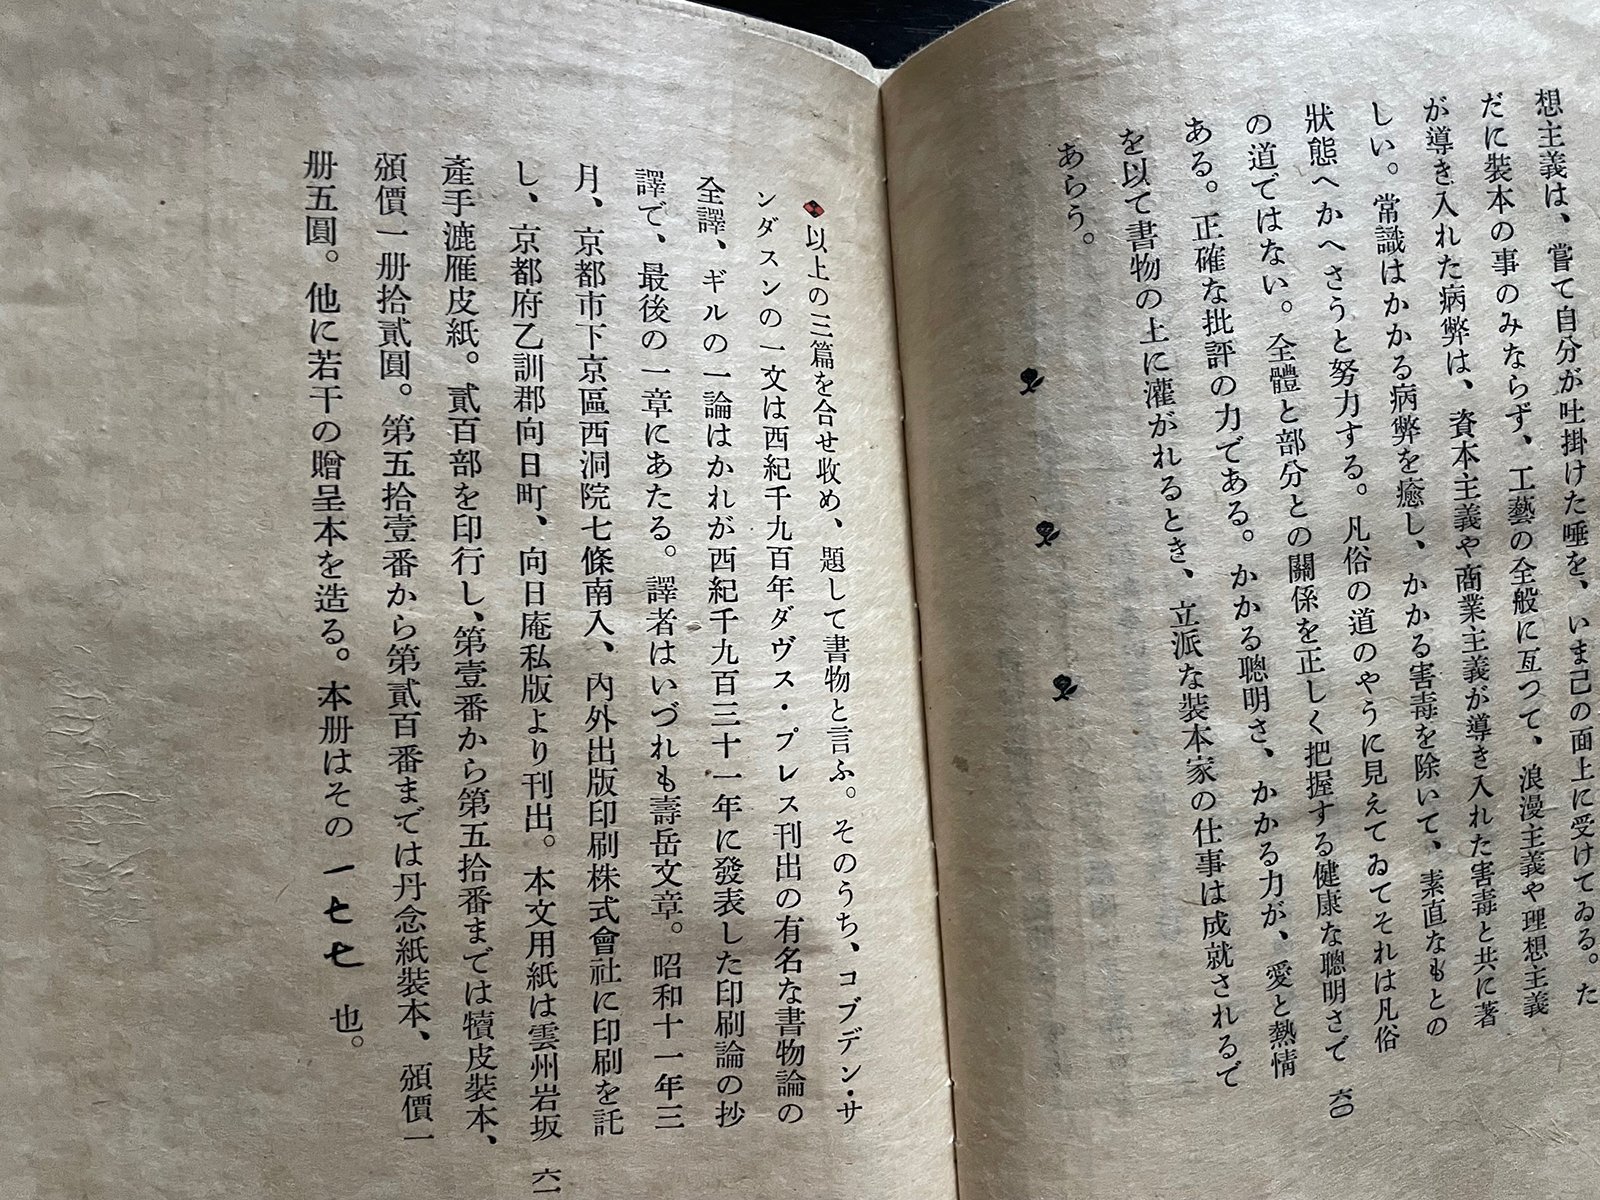 想主義は、嘗て自分が吐掛けた唾を、いま己の面上に受けてゐる。た
だに裝本の事のみならず、工藝の全般に亙つて、浪漫主義や理想主義
が導き入れた病弊は、資本主義や商業主義が導き入れた害毒と共に著
しい。常識はかかる病弊を癒し、かかる害毒を除いて、素直なもとの
狀態へかへさうと努力する。凡俗の道のやうに見えてゐてそれは凡俗
の道ではない。全體と部分との關係を正しく把握する健康な聰明さで
ある。正確な批評の力である。かかる聰明さ、かかる力が、愛と熱情
を以て書物の上に灌がれるとき、立派な裝本家の仕事は成就されるで
あらう。
六〇
以上の三篇を合せ收め、題して書物と言ふ。そのうち、コブデン・サ
ンダスンの一文は西紀千九百年ダヴス・プレス刊出の有名な書物論の
全譯、ギルの一論はかれが西紀千九百三十一年に發表した印刷論の抄
譯で、最後の一章にあたる。譯者はいづれも壽岳文章。昭和十一年三
月、京都市下京區西洞院七條南入、內外出版印刷株式會社に印刷を託
し、京都府乙訓郡向日町、向日庵私版より刊出。本文用紙は雲州岩坂
產手漉雁皮紙。貳百部を印行し、第壹番から第五拾番までは犢皮裝本、
頒價一册拾貳圓。第五拾壹番から第貳百番までは丹念紙裝本、頒價一
册五圓。他に若干の贈呈本を造る。本册はその 一七七 也。
六一